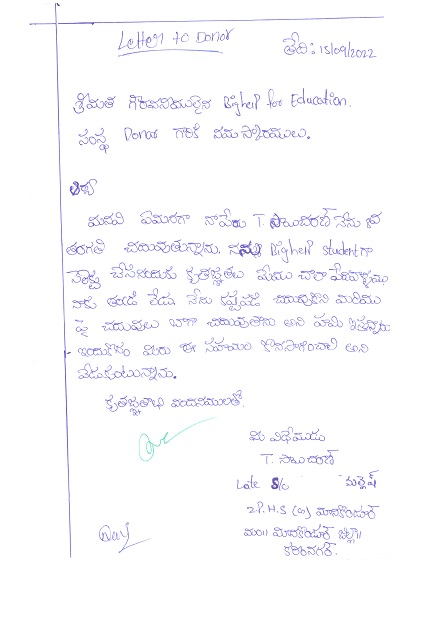 Letter to Donor
తేది: 15/09/2022
శ్రీమతి గౌరవనీయులైన Bighelp for Education.
సంస్థ Donor గారికి నమస్కారములు.
మనవి ఏమనగా నాపేరు T. సాయిచరణ్ నేను
తరగతి చదువుతున్నాను. నన్ను Bighelp studentగా
సెలెక్ట్ చేసినందుకు కృతజ్ఞతలు మేము చాలా పేదవాళ్ళము
నాకు తండ్రి లేడు నేను కష్టపడి చదువుకొని మరియు
పై చదువులు బాగా చదువుతాను అని హామి ఇస్తున్నాను
ఇందుకోసం మీరు ఈ సహాయం కొనసాగించాలి అని
వేడుకుంటున్నాను.
కృతజ్ఞతాభి వందనములతో.
మీ విధేయుడు
T. సాయిచరణ్
Late S/o మల్లేష్
Z.P.H.S (@)
కరీంనగర్.